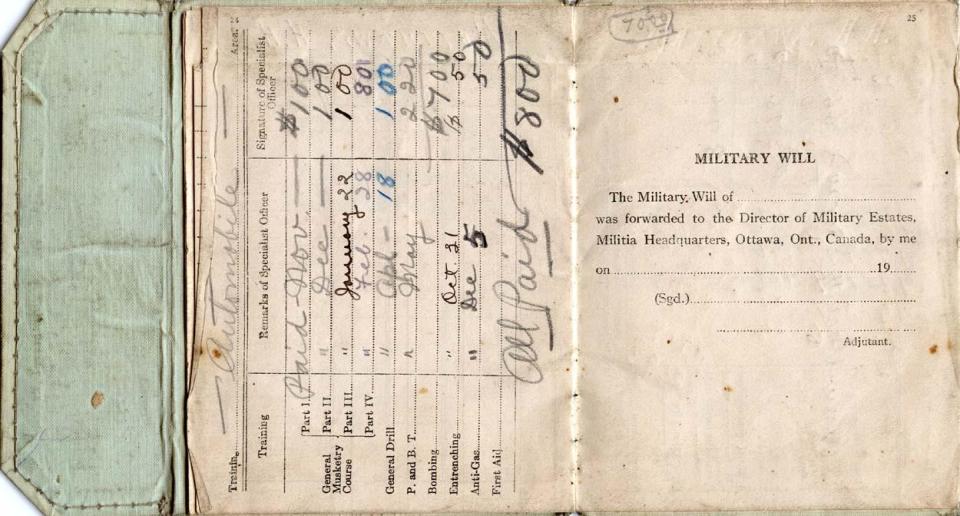 24
Automobile
Training Remarks of Specialist Officer Signature of Specialist Officer
General Musketry Course
Part I. Paid Nov — $1 00
Part II. " Dec — 1 00
Part III. " January 22 1 00
Part IV. " Feb. 28 80
General Drill " Apl - 18 1 00
P. and B. T. " May 2 20
Bombing $7 00
Entrenching " Oct. 31 $ 50
Anti-Gas " Dec 5 50
First Aid
All Paid $800
25
7000
MILITARY WILL
The Military Will of
was forwarded to the Director of Military Estates,
Militia Headquarters, Ottawa, Ont., Canada, by me
on 19
(Sgd.)
Adjutant.